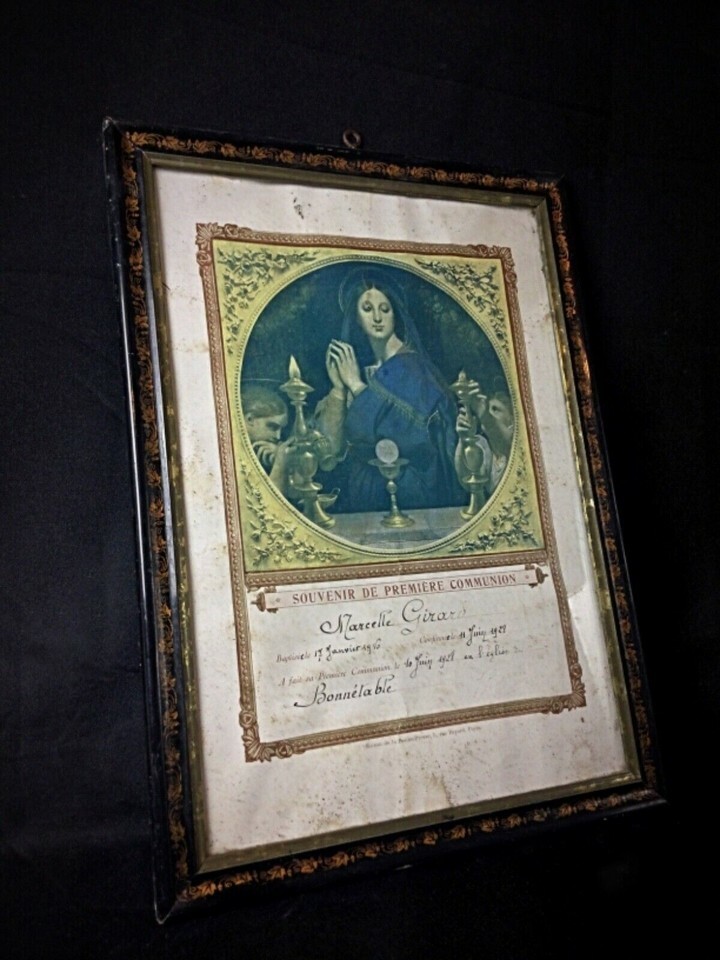 SOUVENIR DE PREMIÈRE COMMUNION
Marcelle Girard
Baptisée le 17 Janvier Confirmée le 11 Juin
A fait sa Première Communion le 10 Juin en l'église de
Bonnétable